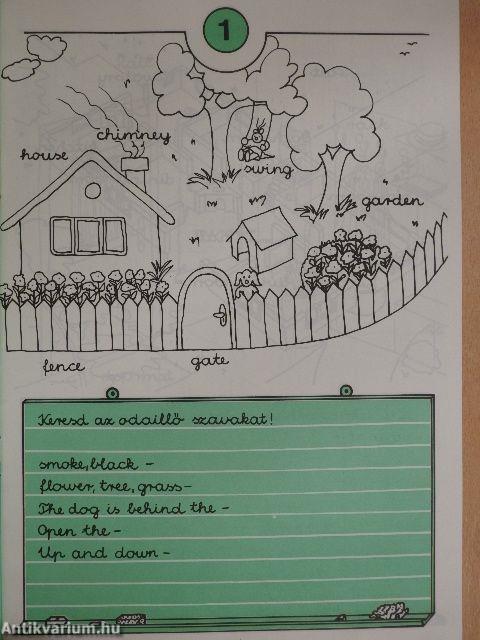 1
chimney
house
swing
garden
fence
gate
Keresd az odaillő szavakat!
smoke, black -
flower, tree, grass-
The dog is behind the -
Open the -
Up and down -
Antikvarium.hu